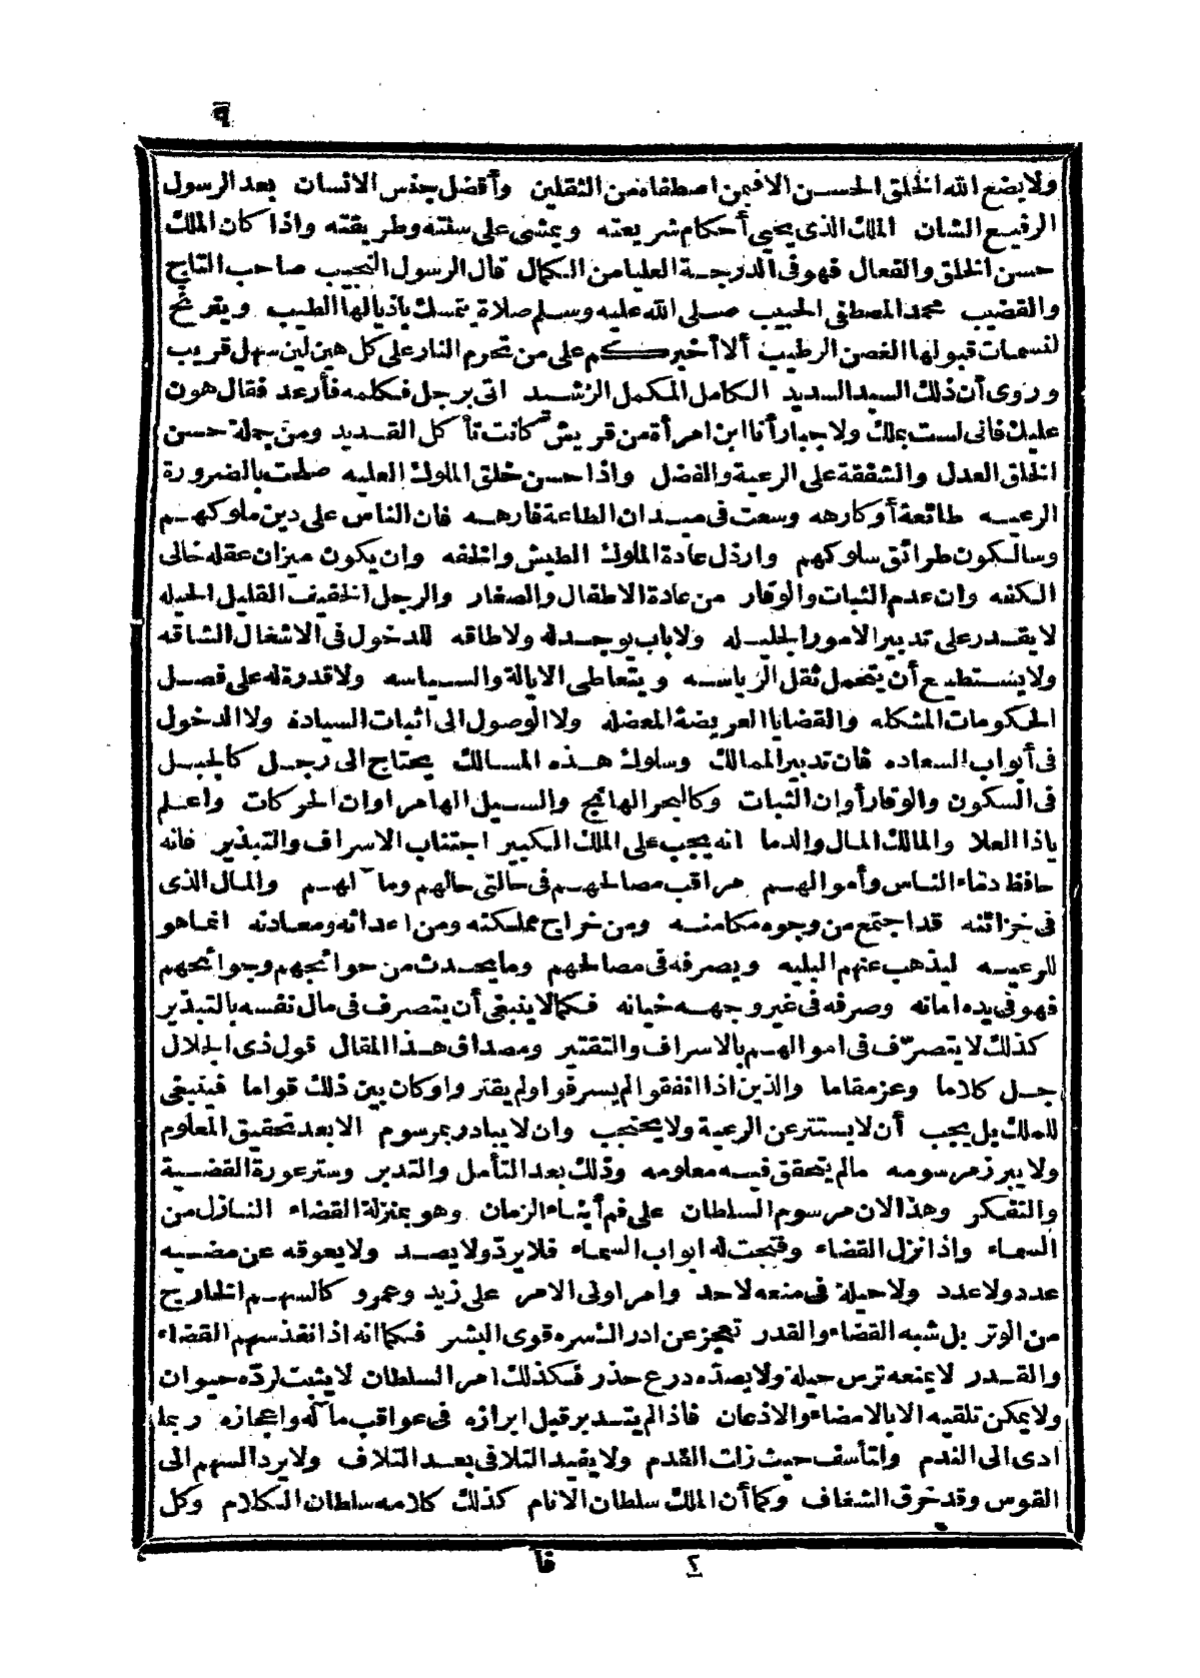 ٩
ولا يضع الله الخلق الحسن الا فيمن اصطفاه من الثقلين وأفضل جنس الانسان بعد الرسول
الرفيع الشان الملك الذى يحيى أحكام شريعته ويمشى على سنته وطريقته واذا كان الملك
حسن الخلق والفعال فهو فى الدرجة العليا من الكمال قال الرسول النجيب صاحب التاج
والقضيب محمد المصطفى الحبيب صلى الله عليه وسلم صلاة يتمسك باذيالها الطيب ويترنح
لنسمات قبولها الغصن الرطيب ألا أخبركم على من تحرم النار على كل هين لين سهل قريب
وروى أن ذلك السيد السديد الكامل المكمل الرشيد اتى برجل فكلمه فأرعد فقال هون
عليك فانى لست بملك ولا جبار أنا ابن امرأة من قريش كانت تأكل القديد ومن جملة حسن
الخلق العدل والشفقة على الرعية والفضل واذا حسن خلق الملوك العليه صلحت بالضرورة
الرعيه طائعة أو كارهه وسعت فى ميدان الطاعة فارهه فان الناس على دين ملوكهم
وسالكون طرائق سلوكهم وارذل عادة الملوك الطيش والخفه وان يكون ميزان عقله خالى
الكفه وان عدم الثبات والوقار من عادة الاطفال والصغار والرجل الخفيف القليل الحيله
لا يقدر على تدبير الامور الجليله ولا باب يوجد له ولا طاقه للدخول فى الاشغال الشاقه
ولا يستطيع أن يتحمل ثقل الرياسه ويتعاطى الايالة والسياسه ولا قدرة له على فصل
الحكومات المشكله والقضايا العريضة المعضله ولا الوصول الى اثبات السيادة ولا الدخول
فى أبواب السعاده فان تدبير الممالك وسلوك هذه المسالك يحتاج الى رجل كالجبل
فى السكون والوقار أوان الثبات وكالبحر الهائج والسيل الهامر اوان الحركات واعلم
ياذا العلا والمالك المال والدما انه يجب على الملك الكبير اجتناب الاسراف والتبذير فانه
حافظ دماء الناس وأموالهم مراقب مصالحهم فى حالتى حالهم ومآلهم والمال الذى
فى خزائنه قد اجتمع من وجوه مكامنه ومن خراج مملكته ومن اعدائه ومعادنه انما هو
للرعيه ليذهب عنهم البليه ويصرفه فى مصالحهم وما يحدث من حوائجهم وجوائحهم
فهو فى يده امانه وصرفه فى غير وجهه خيانه فكما لا ينبغى أن يتصرف فى مال نفسه بالتبذير
كذلك لا يتصرّف فى اموالهم بالاسراف والتقتير ومصداق هذا المقال قول ذى الجلال
جل كلاما وعز مقاما والذين اذا انفقوا لم يسرفوا ولم يقتروا وكان بين ذلك قواما فينبغى
للملك بل يجب أن لا يستتر عن الرعية ولا يحتجب وان لا يبادر بمرسوم الا بعد تحقيق المعلوم
ولا يبرز مرسومه مالم يتحقق فيه معلومه وذلك بعد التأمل والتدبر وستر عورة القضية
والتفكر وهذا لان مرسوم السلطان على فم أبناء الزمان وهو بمنزلة القضاء النازل من
السماء واذا نزل القضاء وفتحت له ابواب السماء فلا يردّ ولا يصد ولا يعوقه عن مضيه
عدد ولا عدد ولا حيلة فى منعه لاحد وامر اولى الامر على زيد وعمرو كالسهم الخارج
من الوتر بل شبه القضاء والقدر تعجز عن ادراك سره قوى البشر فكما انه اذا نفذ سهم القضاء
والقدر لا يمنعه ترس حيلة ولا يصدّه درع حذر فكذلك امر السلطان لا يثبت لردّه حيوان
ولا يمكن تلقيه الا بالامضاء والاذعان فاذا لم يتدبر قبل ابرازه فى عواقب مآله واعجازه ربما
ادى الى الندم والتأسف حيث زلت القدم ولا يفيد التلافى بعد التلاف ولا يرد السهم الى
القوس وقد خرق الشغاف وكما أن الملك سلطان الانام كذلك كلامه سلطان الكلام وكل
٢ فا